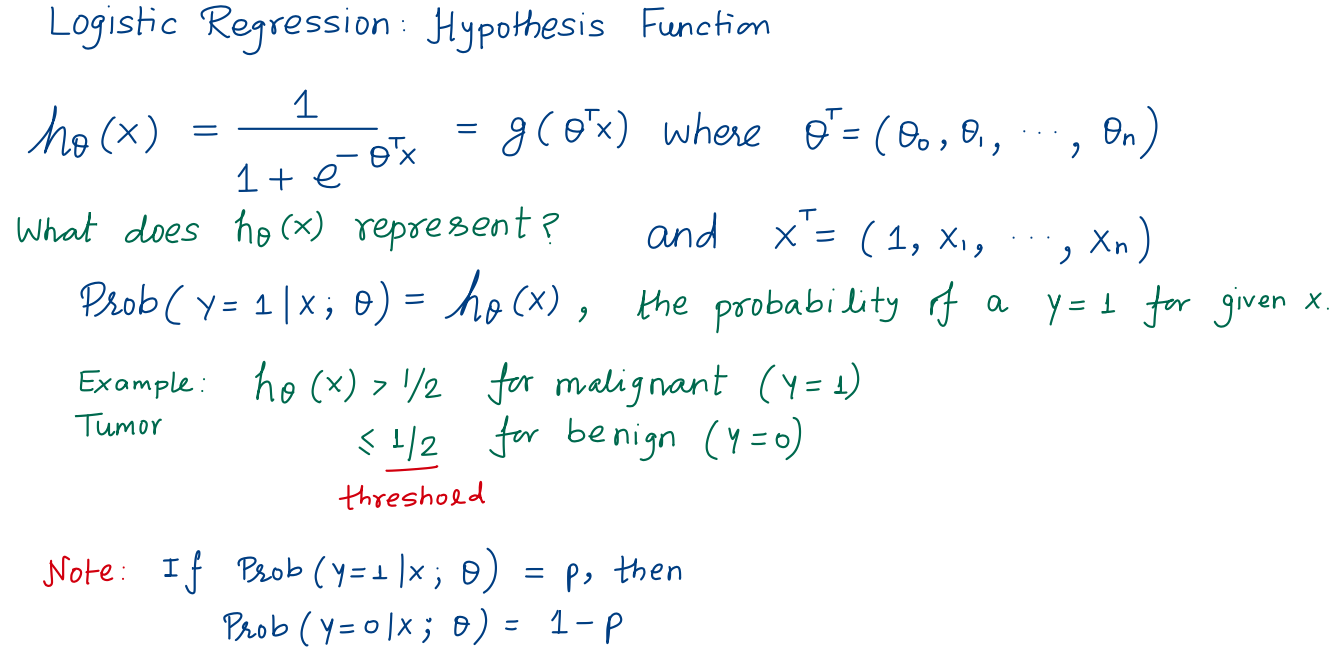 Logistic Regression: Hypothesis Function
hθ(x) = 1 / (1 + e^(-θᵀx)) = g(θᵀx) where θᵀ = (θ₀, θ₁, ..., θₙ)
What does hθ(x) represent? and xᵀ = (1, x₁, ..., xₙ)
Prob(y = 1 | x; θ) = hθ(x), the probability of a y = 1 for given x.
Example: hθ(x) > 1/2 for malignant (y = 1)
Tumor ≤ 1/2 for benign (y = 0)
threshold
Note: If Prob(y = 1 | x; θ) = p, then
Prob(y = 0 | x; θ) = 1 - p